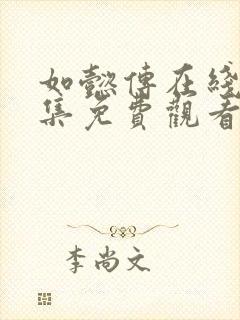 如懿傳在綫
集免費觀看
李尚文